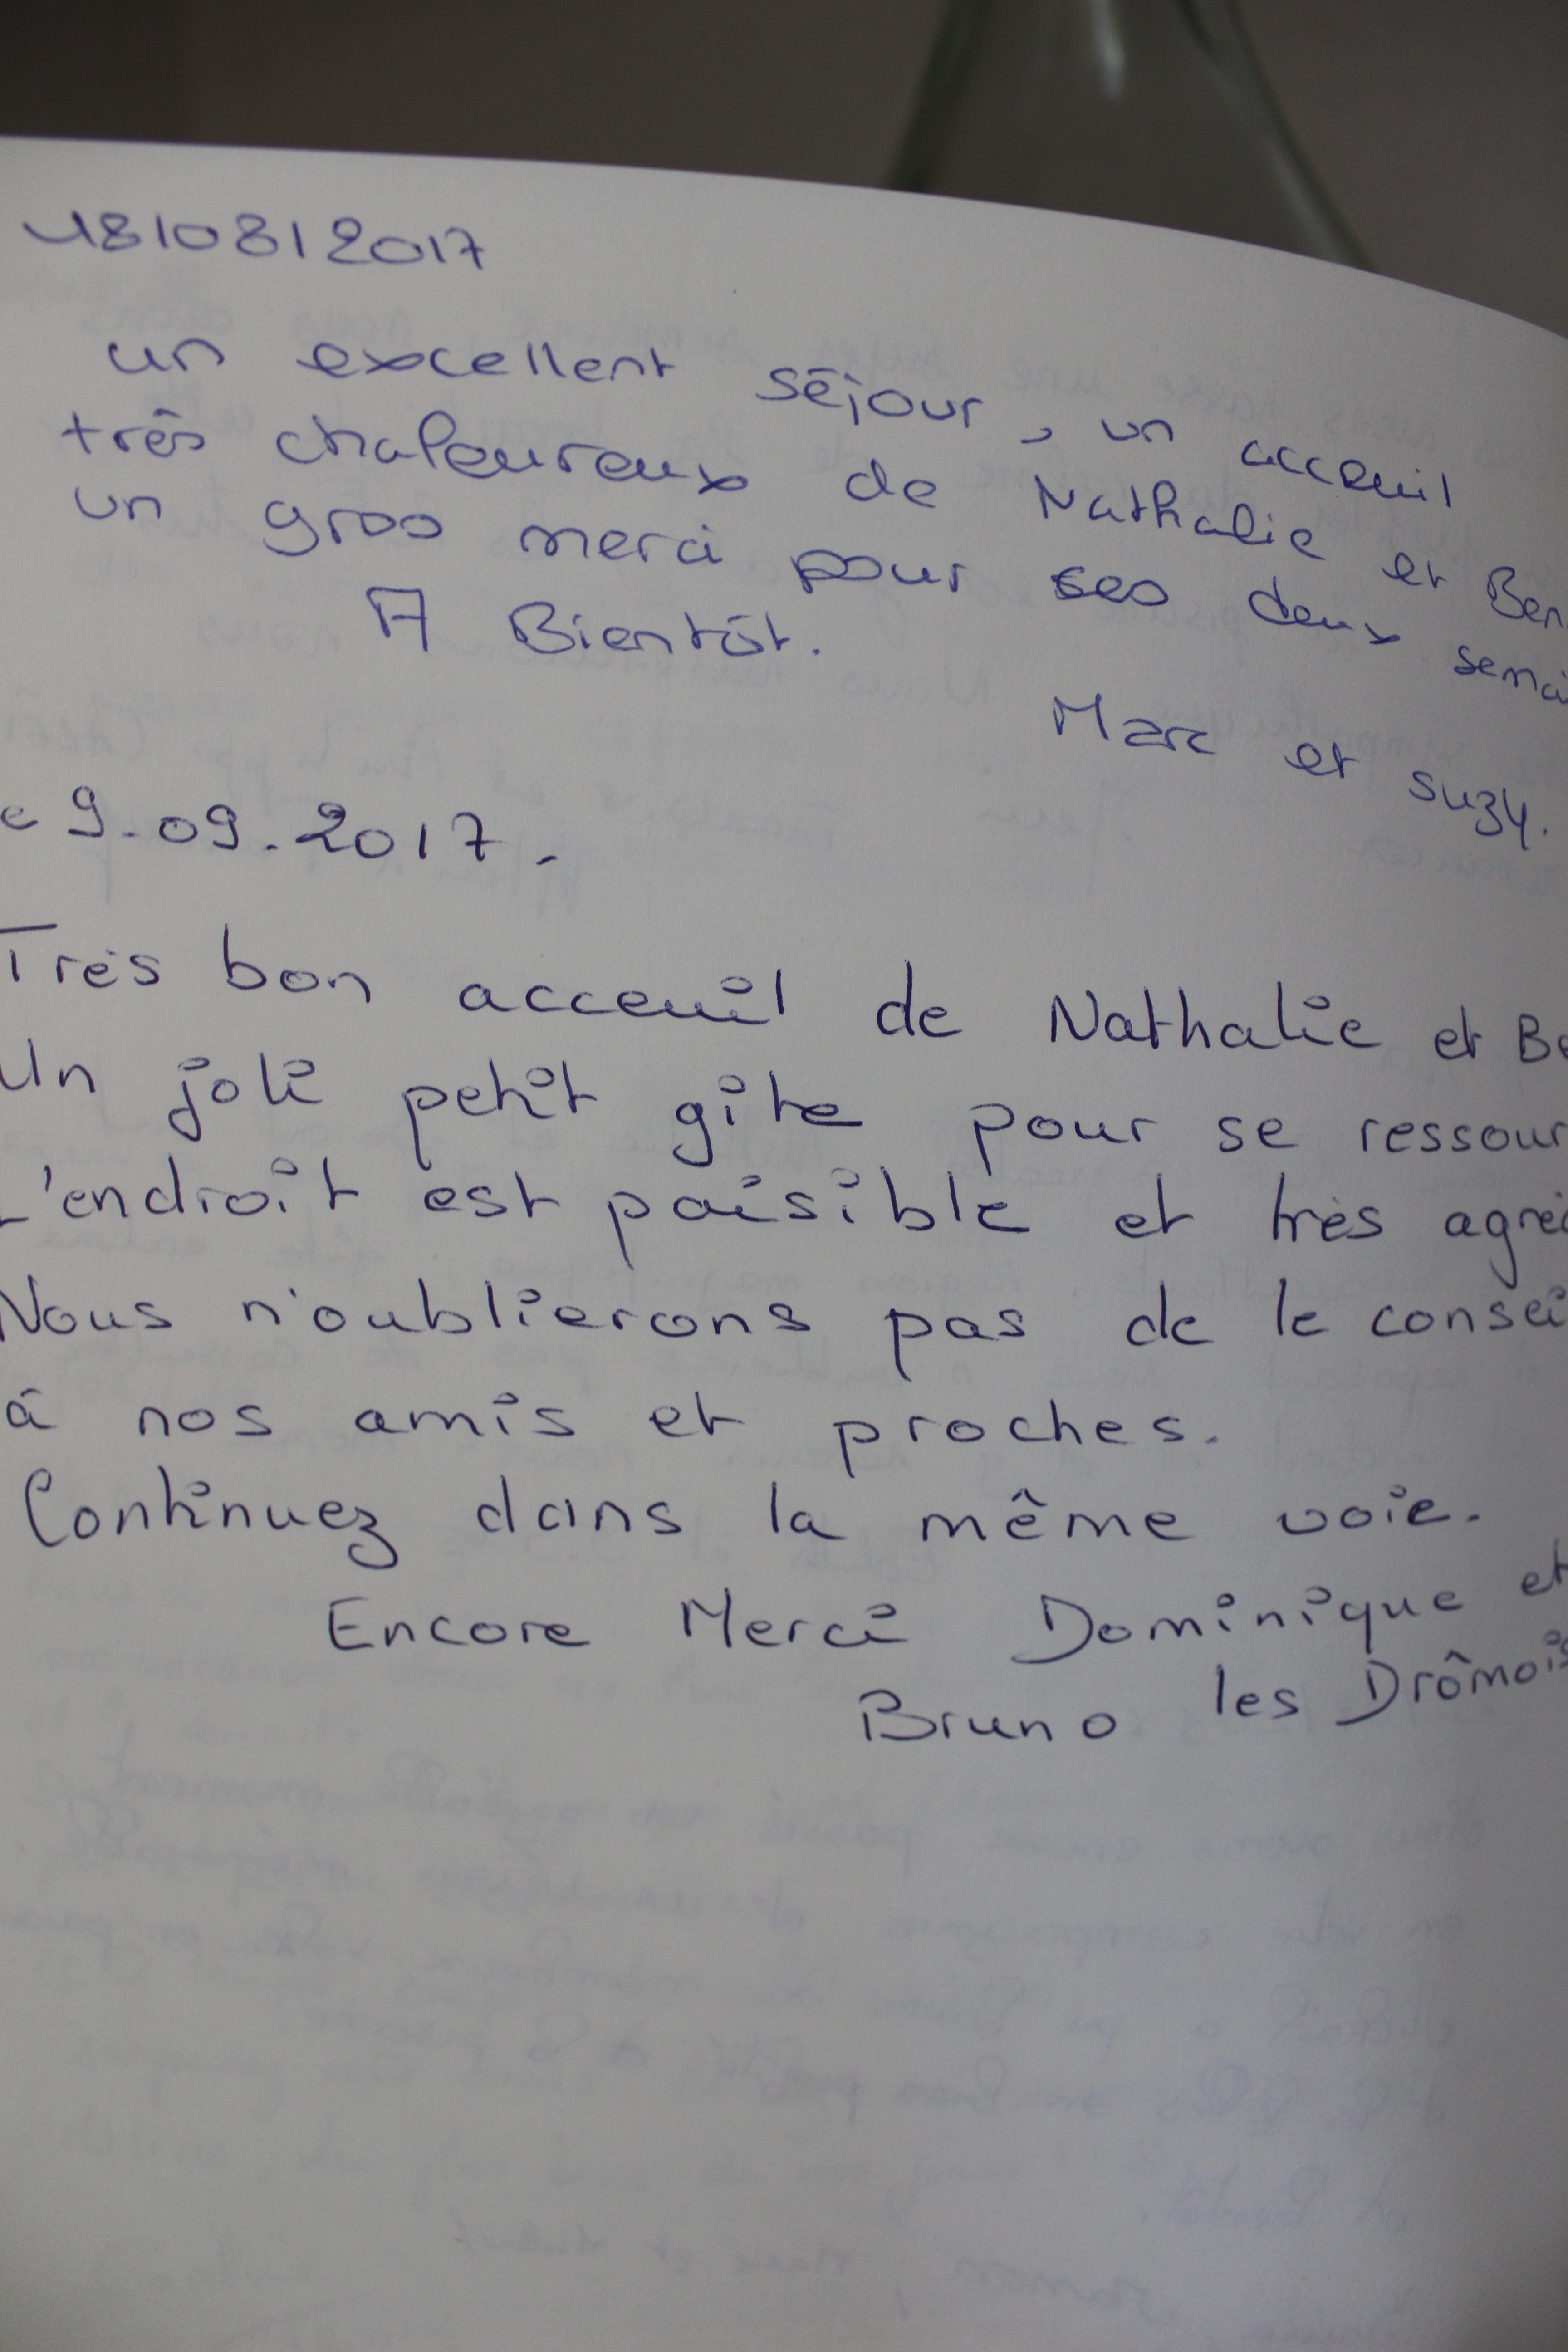 18/08/2017
un excellent séjour, un acceuil
très chaleureux de Nathalie et Ben
un gros merci pour ses deux semai
A Bientôt.
Marc et suzy.
e 9.09.2017.
Très bon acceuil de Nathalie et Be
Un joli petit gîte pour se ressour
L'endroit est paisible et très agré
Nous n'oublierons pas de le consei
à nos amis et proches.
Continuez dans la même voie.
Encore Merci Dominique et
Bruno les Drômois